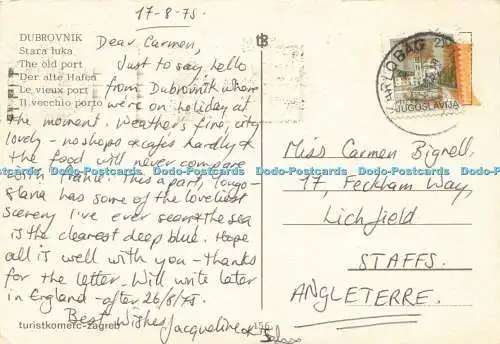 17-8-75.
DUBROVNIK
Stara luka
The old port
Der alte Hafen
Le vieux port
Il vecchio porto
Dear Carmen,
Just to say hello
from Dubrovnik where
we're on holiday at
the moment. Weather's fine, city
lovely - no shops or cafes hardly &
the food will never compare
with France. This apart, Yugo-
slavia has some of the loveliest
scenery I've ever seen & the sea
is the clearest deep blue. Hope
all is well with you - thanks
for the letter. Will write later
in England - after 26/8/75.
Best Wishes Jacqueline
turistkomerc-zagreb
156
tB
KARLOBAG
2.10
JUGOSLAVIJA
Miss Carmen Bignell,
17, Peckham Way,
Lichfield
STAFFS.
ANGLETERRE.
Dodo-Postcards Dodo-Postcards Dodo-Postcards Dodo-Postcards